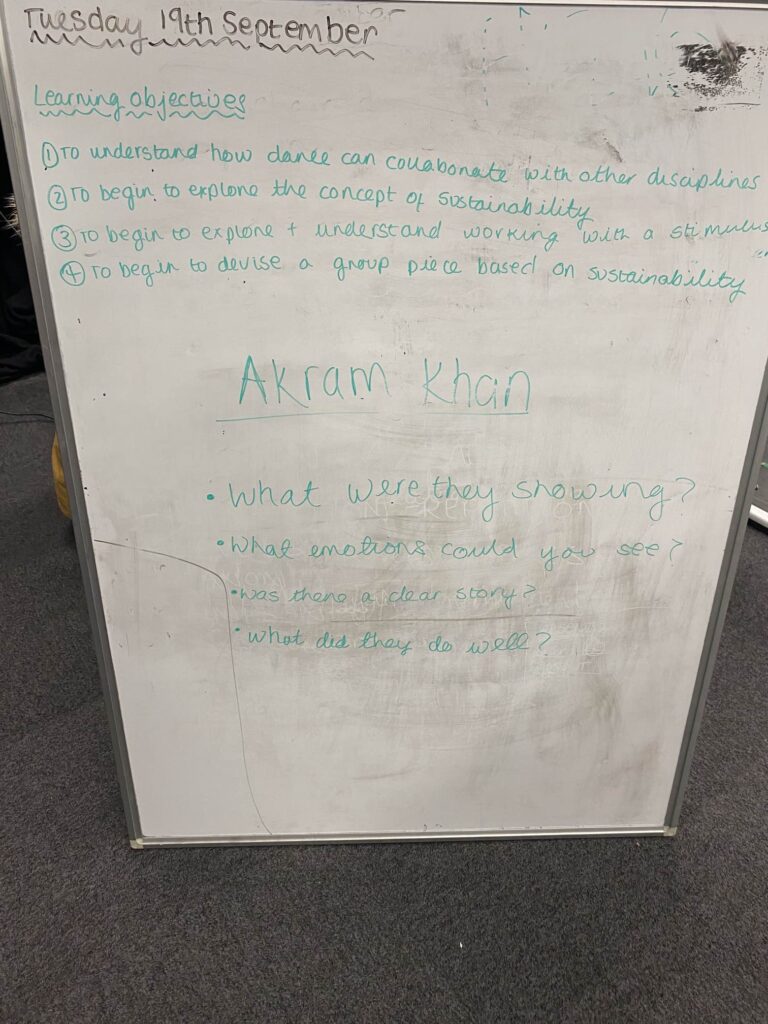 Tuesday 19th September
Learning objectives
① To understand how dance can collabonate with other disciplines
② To begin to explore the concept of sustainability
③ To begin to explore + understand working with a stimulus
④ To begin to devise a group piece based on sustainability
Akram Khan
• What were they showing?
• What emotions could you see?
• Was there a clear story?
• What did they do well?